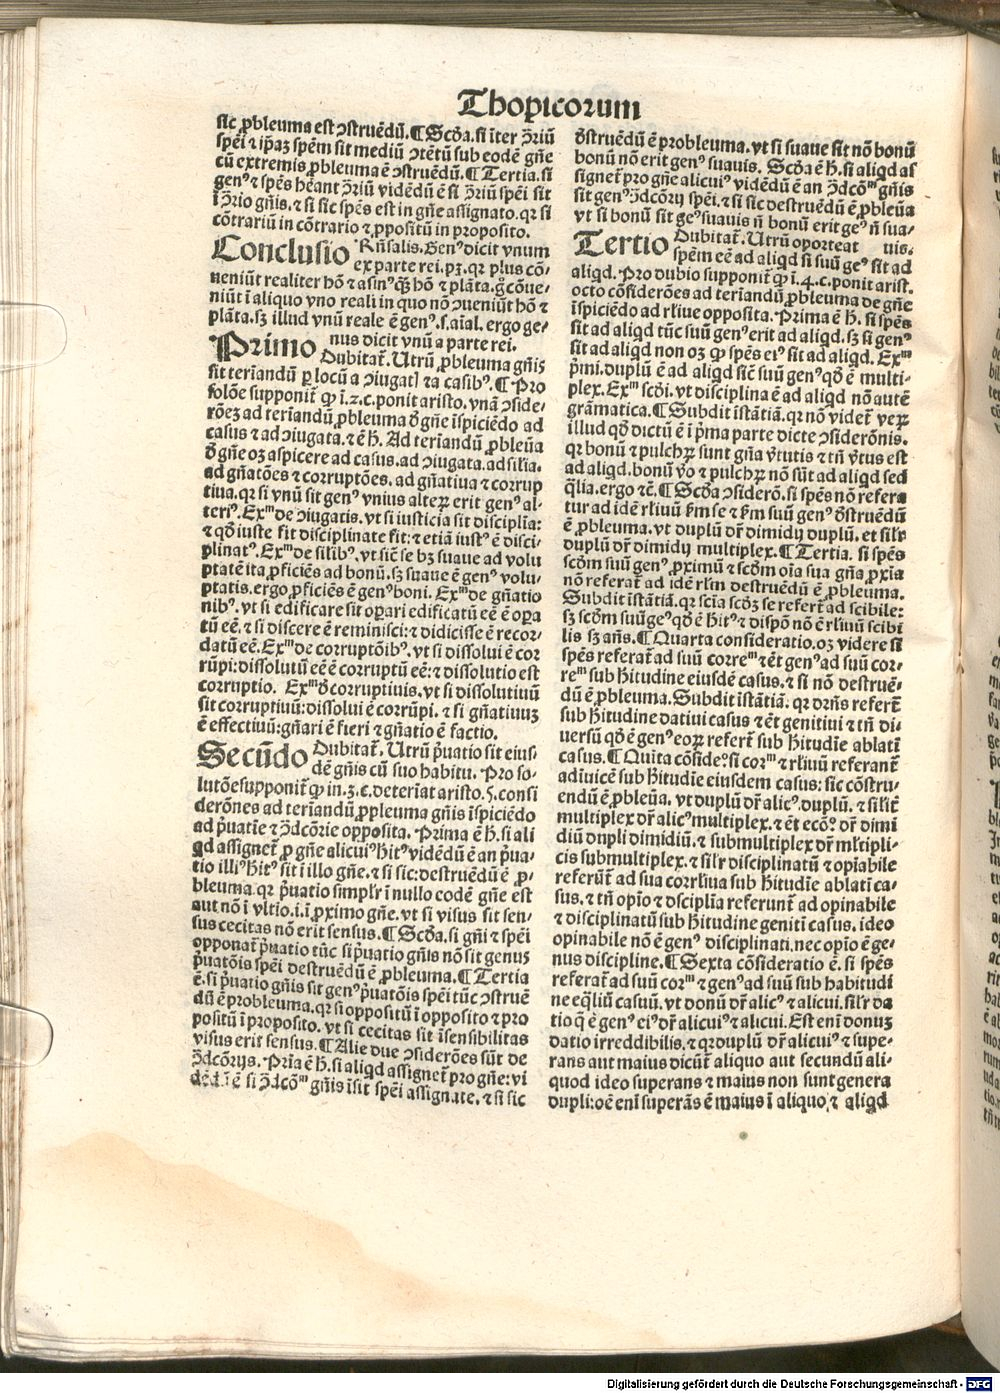 Thopicorum
sic ꝓbleuma est ↄstruēdū. ¶ Scd̄a. si īter ↄ̄riū
spēi ⁊ ip̄aꝫ spēm sit mediū ↄtētū sub eodē gn̄e
cū extremis ꝓbleuma ē ↄstruēdū. ¶ Tertia. si
genꝰ ⁊ spēs hēant ↄ̄riū vidēdū ē si ↄ̄riū spēi sit
ī ↄ̄rio gn̄is. ⁊ si sic spēs est in gn̄e assignato. qr si
cōtrariū in cōtrario ⁊ ꝓpositū in proposito.
Conclusio Rn̄salis. Genꝰ dicit vnum
ex parte rei. pꝫ. qr plus cō-
neniūt realiter hō ⁊ asinꝰ qꝫ hō ⁊ plāta. gͦ cōue-
niūt ī aliquo vno reali in quo nō ↄueniūt hō ⁊
plāta. sꝫ illud vnū reale ē genꝰ. s. aīal. ergo ge-
nus dicit vnū a parte rei.
Primo Dubitat̄. Utrū ꝓbleuma gn̄is
sit terīandū ꝑ locū a ↄiugatꝭ ⁊ a casibꝰ. ¶ Pro
solōe supponit̄ ꝙ ī. 2. c. ponit aristo. vnā ↄside-
rōeꝫ ad terīandū ꝓbleuma ð gn̄e īspiciēdo ad
casus ⁊ ad ↄiugata. ⁊ ē h̄. Ad terīandū ꝓbleūa
ð gn̄e oꝫ aspicere ad casus. ad ↄiugata. ad sil̄ia.
ad gn̄atōes ⁊ corruptōes. ad gn̄atiua ⁊ corrup
tiua. qr si vnū sit genꝰ vnius alterꝝ erit genꝰ al-
teriꝰ. Exᵐ de ↄiugatis. vt si iusticia sit disciplīa:
⁊ qð iuste fit disciplinate fit: ⁊ etiā iustꝰ ē disci-
plinatꝰ. Exᵐ de sil̄ibꝰ. vt sic̄ se hꝫ suaue ad volu
ptatē ita ꝓficiēs ad bonū. sꝫ suaue ē genꝰ volu-
ptatis. ergo ꝓficiēs ē genꝰ boni. Exᵐ de gn̄atio
nibꝰ. vt si edificare sit oꝑari edificatū eē ē oꝑa
tū eē. ⁊ si discere ē reminisci: ⁊ didicisse ē recor-
datū eē. Exᵐ de corruptōibꝰ. vt si dissolui ē cor
rūpi: dissolutū eē ē corruptū eē: ⁊ dissolutio est
corruptio. Exᵐ ð corruptiuis. vt si dissolutiuū
sit corruptiuū: dissolui ē corrūpi. ⁊ si gn̄atiuuꝫ
ē effectiuū: gn̄ari ē fieri ⁊ gn̄atio ē factio.
Secūdo Dubitat̄. Utrū p̄uatio sit eius-
dē gn̄is cū suo habitu. Pro so-
lutōe supponit̄ ꝙ in. 3. c. deteriat aristo. 5. consi
derōnes ad terīandū ꝓpleuma gn̄is īspiciēdo
ad p̄uatīe ⁊ ↄ̄dcōrie opposita. Prima ē h̄. si ali
qd assignet̄ ꝓ gn̄e alicuiꝰ hitꝰ vidēdū ē an p̄ua-
tio illiꝰ hitꝰ sit ī illo gn̄e. ⁊ si sic: destruēdū ē ꝓ-
bleuma. qr p̄uatio simpl̄r ī nullo eodē gn̄e est
aut nō ī vltīo. i. ī ꝓximo gn̄e. vt si visus sit sen-
sus cecitas nō erit sensus. ¶ Scd̄a. si gn̄i ⁊ spēi
opponat̄ p̄uatio tūc si p̄uatio gn̄is nō sit genus
p̄uatōis spēi destruēdū ē ꝓbleuma. ¶ Tertia
ē. si p̄uatio gn̄is sit genꝰ p̄uatōis spēi tūc ↄstruē
dū ē probleuma. qr si oppositū ī opposito ⁊ pro
positū ī proposito. vt si cecitas sit īsensibilitas
visus erit sensus. ¶ Alie due ↄsiderōes sūt de
ↄ̄dcōrijs. Pria ē h̄. si aliqd assignet̄ pro gn̄e: vi
dēdū ē si ↄ̄dcōᵐ gn̄is īsit spēi assignate. ⁊ si sic
ðstruēdū ē probleuma. vt si suaue sit nō bonū
bonū nō erit genꝰ suauis. Scd̄a ē h̄. si aliqd as
signet̄ pro gn̄e alicuiꝰ vidēdū ē an ↄ̄dcōᵐ gn̄is
sit genꝰ ↄ̄dcōrij spēi. ⁊ si sic destruēdū ē ꝓbleūa
vt si bonū sit geꝰ suauis n̄ bonū erit geꝰ n̄ sua-
Tertio Dubitat̄. Utrū oporteat uis.
spēm eē ad aliqd si suū geꝰ sit ad
aliqd. Pro dubio supponit̄ ꝙ ī. 4. c. ponit arist.
octo cōsiderōes ad terīandū ꝓbleuma de gn̄e
īspiciēdo ad rl̄iue opposita. Prima ē h̄. si spēs
sit ad aliqd tūc suū genꝰ erit ad aliqd. sꝫ si genꝰ
sit ad aliqd non oꝫ ꝙ spēs eiꝰ sit ad aliqd. Exᵐ
p̄mi. duplū ē ad aliqd sic̄ suū genꝰ qð ē multi-
plex. Exᵐ scd̄i. vt disciplina ē ad aliqd nō autē
grāmatica. ¶ Subdit īstātiā. qr nō videt̄ veꝝ
illud qð dictū ē ī p̄ma parte dicte ↄsiderōnis.
qr bonū ⁊ pulchꝝ sunt gn̄a v̄tutis ⁊ tn̄ v̄tus est
ad aliqd. bonū v̄o ⁊ pulchꝝ nō sūt ad aliqd sed
q̄lia. ergo ⁊c̄. ¶ Scd̄a ↄsiderō. si spēs nō refera
tur ad idē rl̄iuū ẜm se ⁊ ẜm suū genꝰ ðstruēdū
ē ꝓbleuma. vt duplū dr̄ dimidij duplū. et sil̄r
duplū dr̄ dimidij multiplex. ¶ Tertia. si spēs
scd̄m suū genꝰ ꝓximū ⁊ scd̄m oīa sua gn̄a ꝓxīa
nō referat̄ ad idē rl̄m destruēdū ē ꝓbleuma.
Subdit īstātiā. qr scīa scd̄ꝫ se refert̄ ad scibile:
sꝫ scd̄m suū geꝰ qð ē hitꝰ ⁊ dispō nō ē rl̄iuū scibi
lis sꝫ aīs. ¶ Quarta consideratio. oꝫ videre si
spēs referat̄ ad suū correᵐ ⁊ ēt genꝰ ad suū cor-
reᵐ sub hitudine eiusdē casus. ⁊ si nō destruē-
dū ē ꝓbleuma. Subdit īstātiā. qr drn̄s refert̄
sub hitudine datiui casus ⁊ ēt genitiui ⁊ tn̄ di-
uersū qð ē genꝰ eoꝝ refert̄ sub hitudīe ablatī
casus. ¶ Quīta cōsideꝰ. si corᵐ ⁊ rl̄iuū referant̄
adīuicē sub hitudīe eiusdem casus: sic cōstru-
endū ē ꝓbleūa. vt duplū dr̄ alicꝰ. duplū. ⁊ sil̄it̄
multiplex dr̄ alicꝰ multiplex. ⁊ ēt ecōꝰ dr̄ dimi
diū dupli dimidiū. ⁊ submultiplex dr̄ ml̄tipli-
cis submultiplex. ⁊ sil̄r disciplinatū ⁊ opīabile
referūt̄ ad sua corrl̄iua sub hitudīe ablatī ca-
sus. ⁊ tn̄ opīo ⁊ dsciplīa referunt̄ ad opinabile
⁊ disciplinatū sub hitudine genitī casus. ideo
opinabile nō ē genꝰ disciplinati. nec opīo ē ge-
nus discipline. ¶ Sexta cōsideratio ē. si spēs
referat̄ ad suū corᵐ ⁊ genꝰ ad suū sub habitudi
ne eq̄liū casuū. vt donū dr̄ alicꝰ ⁊ alicui. sil̄r da
tio q̄ ē genꝰ eiꝰ dr̄ alicuiꝰ ⁊ alicui. Est enī donuꝫ
datio irreddibilis. ⁊ qr duplū dr̄ alicuiꝰ ⁊ supe-
rans aut maius dicūt̄ aliquo aut secundū ali-
quod ideo superans ⁊ maius non sunt genera
dupli: oē enī superās ē maius ī aliquo, ⁊ aliqd
Digitalisierung gefördert durch die Deutsche Forschungsgemeinschaft - DFG